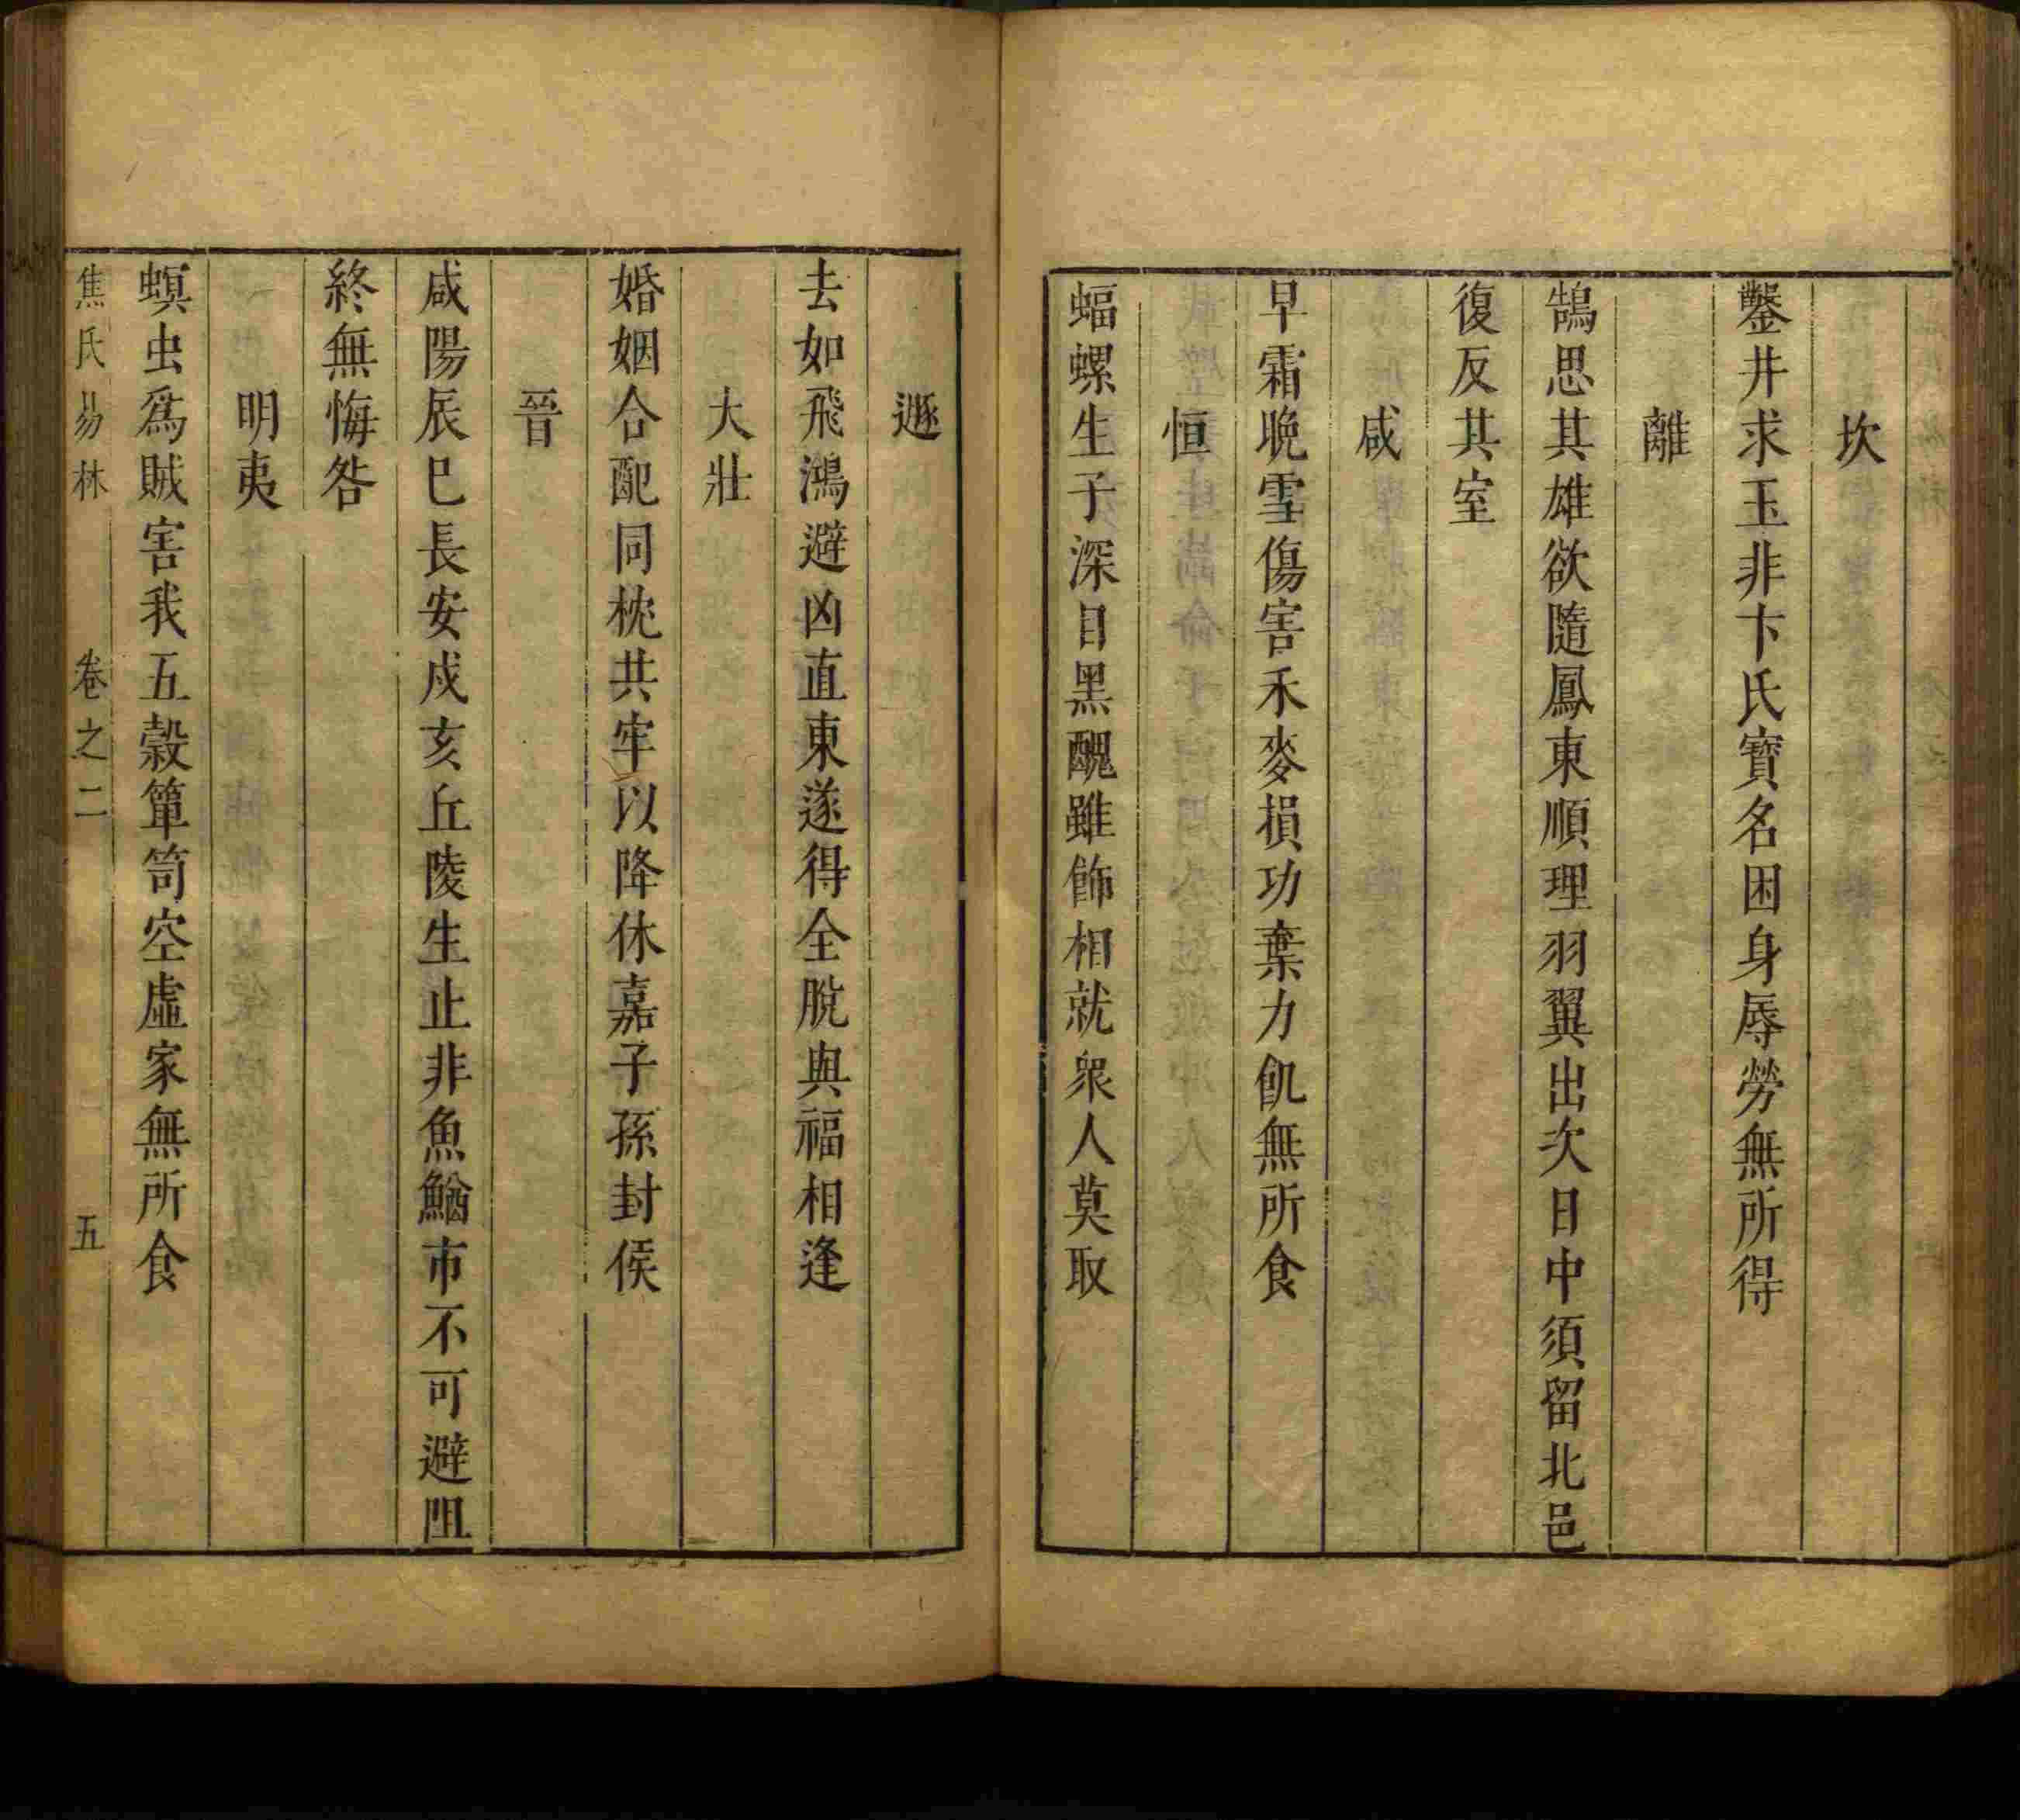 坎
鑿井求玉非卞氏寶名困身辱勞無所得
離
鵠思其雄欲隨鳳東順理羽翼出次日中須留北邑
復反其室
咸
早霜晚雪傷害禾麥損功棄力飢無所食
恒
蝠螺生子深目黑醜雖飾相就衆人莫取
遯
去如飛鴻避凶直東遂得全脫與福相逢
大壯
婚姻合配同枕共牢以降休嘉子孫封侯
晉
咸陽辰巳長安戌亥丘陵生止非魚鰌市不可避阻
終無悔咎
明夷
螟虫爲賊害我五穀簞笥空虛家無所食
焦氏易林 卷之二 五